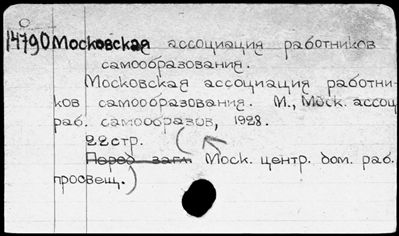 14790 Московская ассоциация работников
самообразования.
Московская ассоциация работни-
ков самообразования. М., Моск. ассоц.
раб. самообразов, 1928.
22стр.
Перед загл. Моск. центр. дом. раб.
просвещ.)